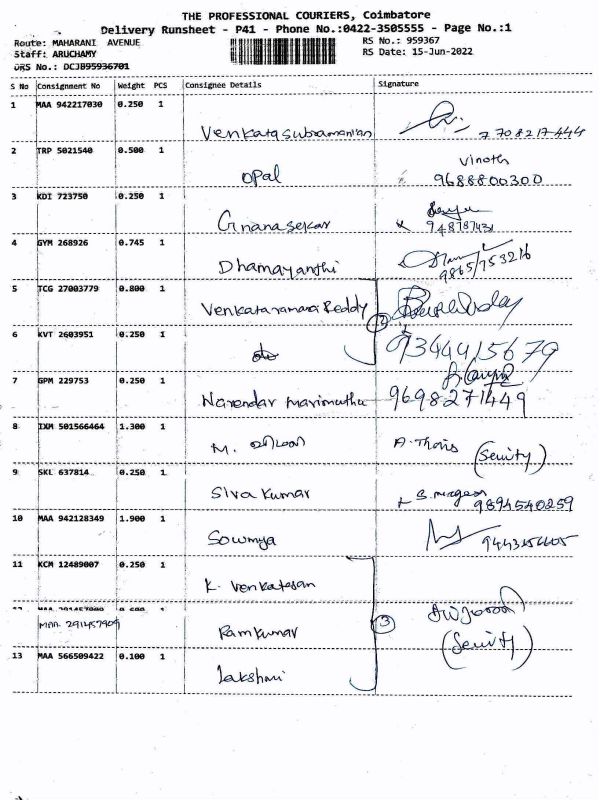 THE PROFESSIONAL COURIERS, Coimbatore
Delivery Runsheet - P41 - Phone No.:0422-3505555 - Page No.:1
Route: MAHARANI AVENUE RS No.: 959367
Staff: ARUCHAMY RS Date: 15-Jun-2022
DRS No.: DCJB95936701
S No Consignment No Weight PCS Consignee Details Signature
1 MAA 942217030 0.250 1 Venkatasubramanian 7708217444
2 TRP 5021540 0.500 1 opal Vinoth
9688800300
3 KDI 723750 0.250 1 Gnanasekar
4 GYM 268926 0.745 1 Dhamayanthi 9865753216
5 TCG 27003779 0.800 1 Venkataramana Reddy
6 KVT 2603951 0.250 1 do 9344915679
7 GPM 229753 0.250 1 Narendar marimuthu 9698271449
8 IXM 501566464 1.300 1 M. A. Thoris (Seurity)
9 SKL 637814 0.250 1 Siva Kumar 9894540259
10 MAA 942128349 1.900 1 Sowmya
11 KCM 12489007 0.250 1 K. Venkatesan
12 MAA 291457909 0.600 1
MAA 291457909 Ramkumar 3 (Seurity)
13 MAA 566509422 0.100 1 Lakshmi